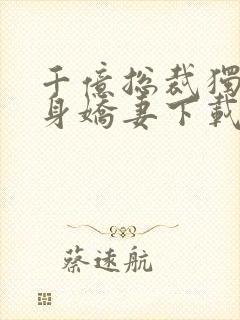 千億总裁獨
身嬌妻下載
蔡遠航